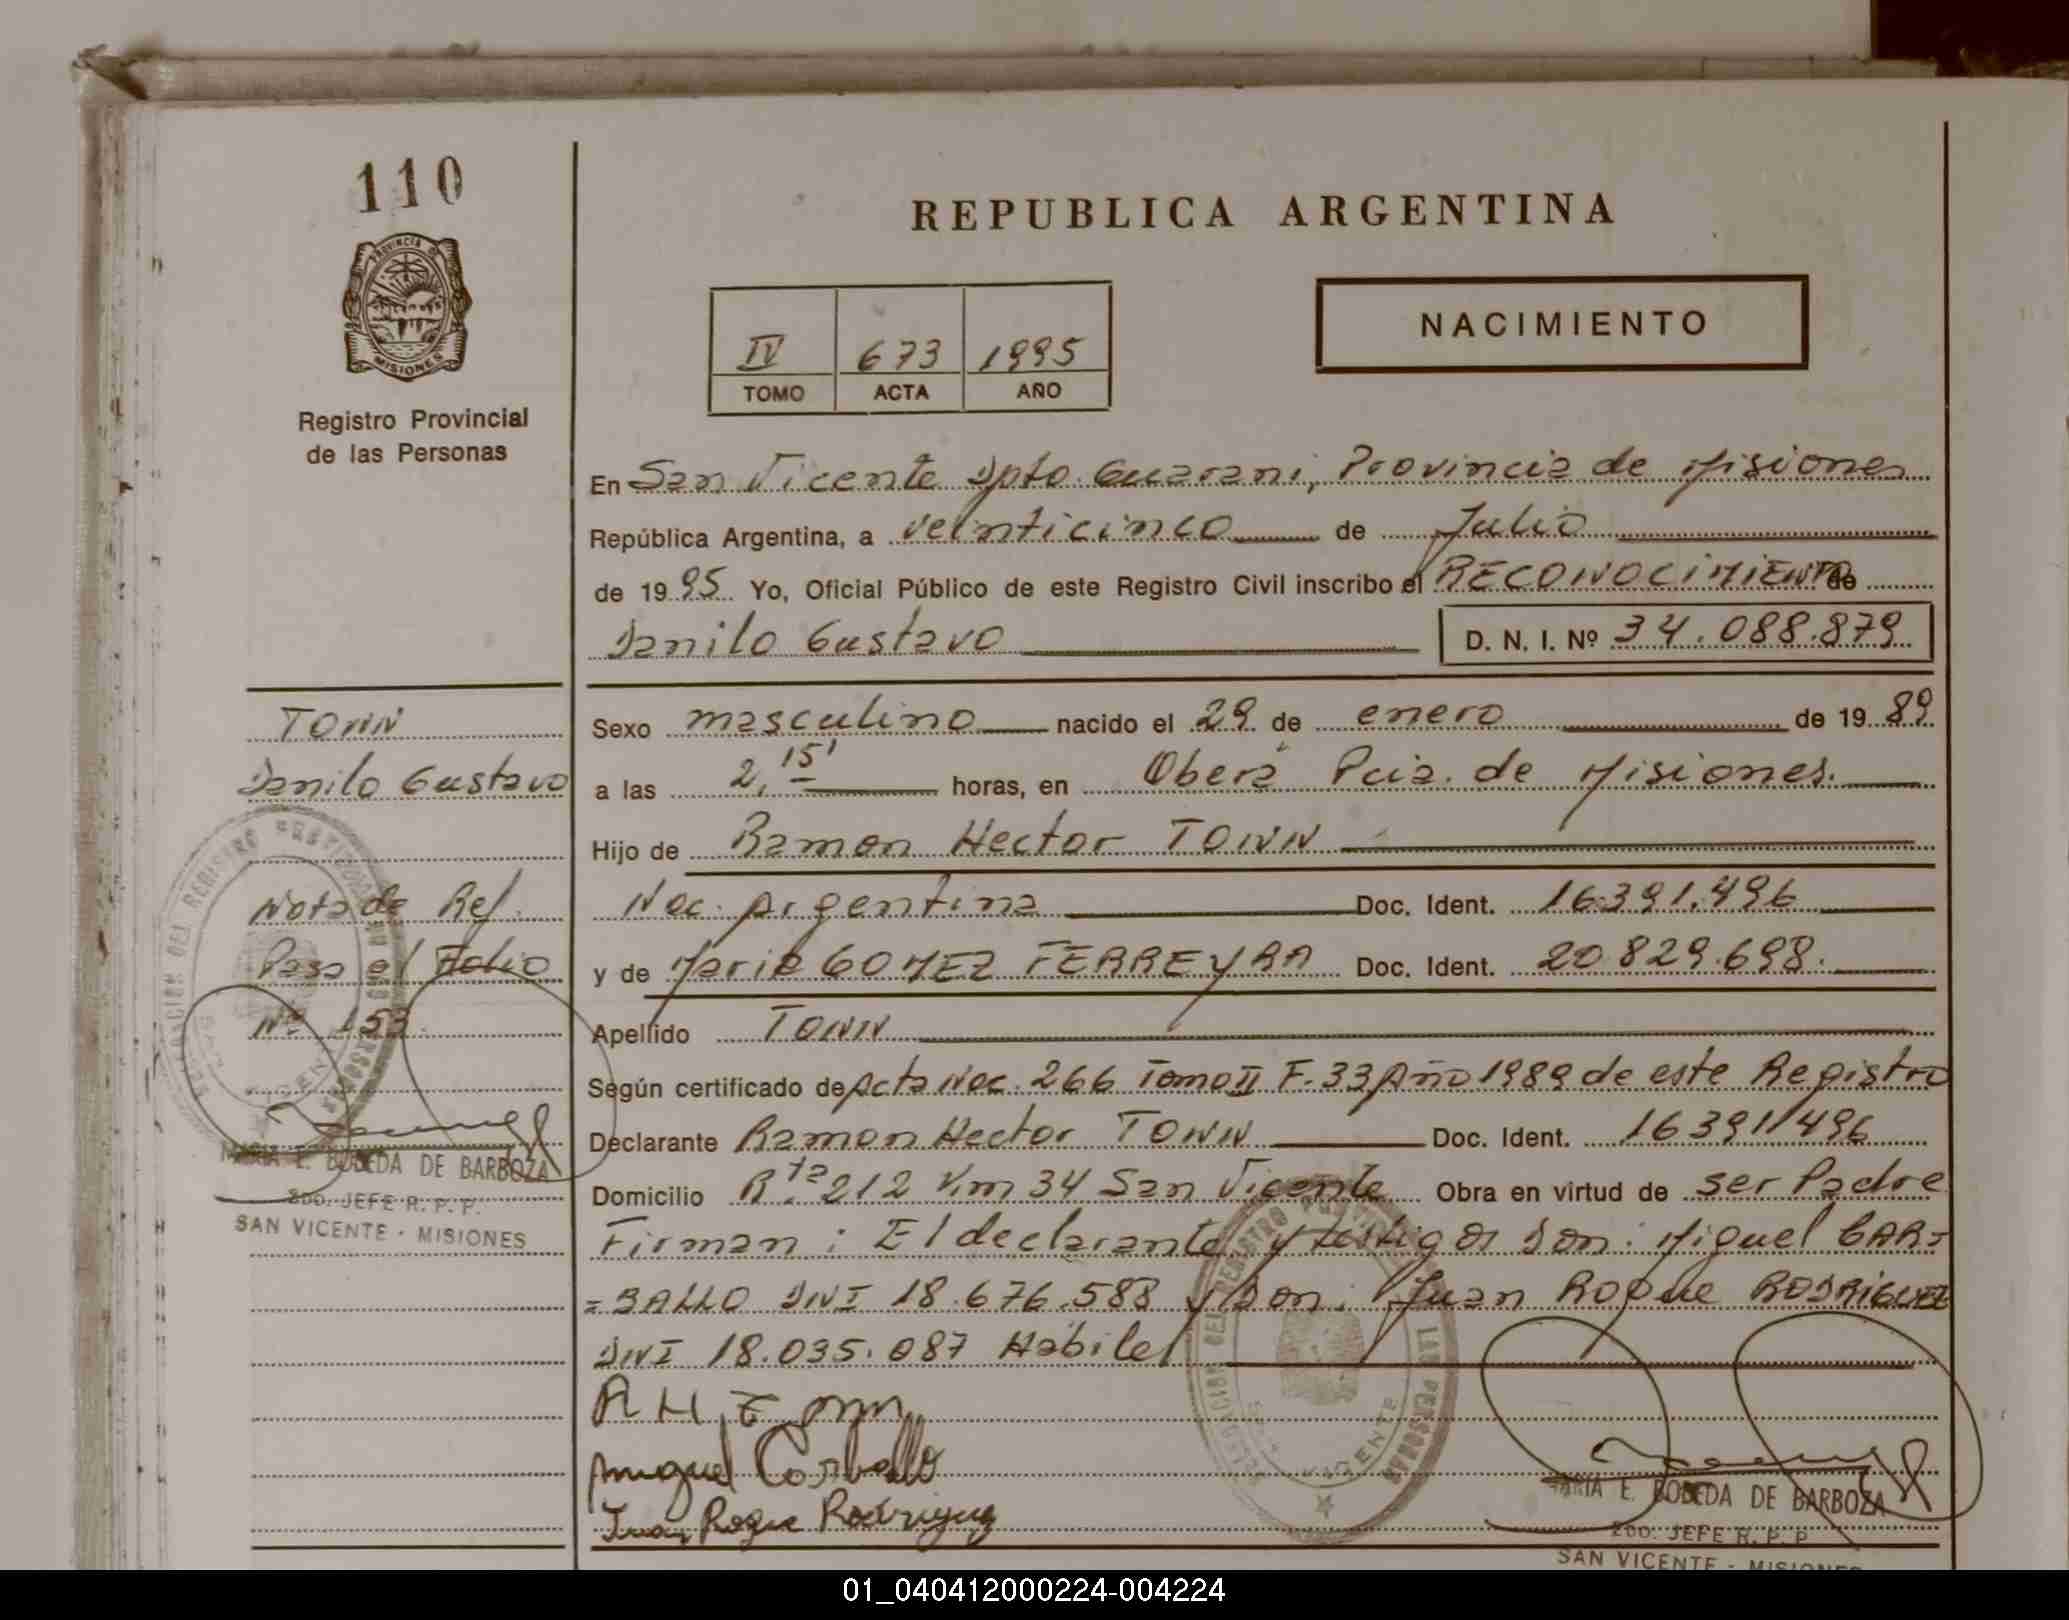 110
PROVINCIA DE
MISIONES
Registro Provincial
de las Personas
REPUBLICA ARGENTINA
IV 673 1995
TOMO ACTA AÑO
NACIMIENTO
En San Vicente Dpto. Guarani, Provincia de Misiones
República Argentina, a veinticinco de Julio
de 1995 Yo, Oficial Público de este Registro Civil inscribo el RECONOCIMIENTO de
Danilo Gustavo D. N. I. Nº 34.088.879
Sexo masculino nacido el 29 de enero de 1989
a las 2,15' horas, en Oberá Pcia. de Misiones.
Hijo de Ramon Hector TONN
Nac. Argentina Doc. Ident. 16.391.496
y de Maria GOMEZ FERREYRA Doc. Ident. 20.829.698.
Apellido TONN
Según certificado de Acta Nac. 266 Tomo II F. 33 Año 1989 de este Registro
Declarante Ramon Hector TONN Doc. Ident. 16391496
Domicilio Rta 212 Km 34 San Vicente Obra en virtud de ser Padre
Firman: El declarante y testigos Don: Miguel CAR-
=BALLO DNI 18.676.588 y Don: Juan Roque RODRIGUEZ
DNI 18.035.087 Habiles
R H Tonn
Miguel Carballo
Juan Roque Rodriguez
MARIA E. BOBEDA DE BARBOZA
2DO. JEFE R. P. P.
SAN VICENTE - MISIONES
TONN
Danilo Gustavo
Nota de Ref.
Pasa al Folio
Nº 153.
MARIA E. BOBEDA DE BARBOZA
2DO. JEFE R. P. P.
SAN VICENTE - MISIONES
01_040412000224-004224